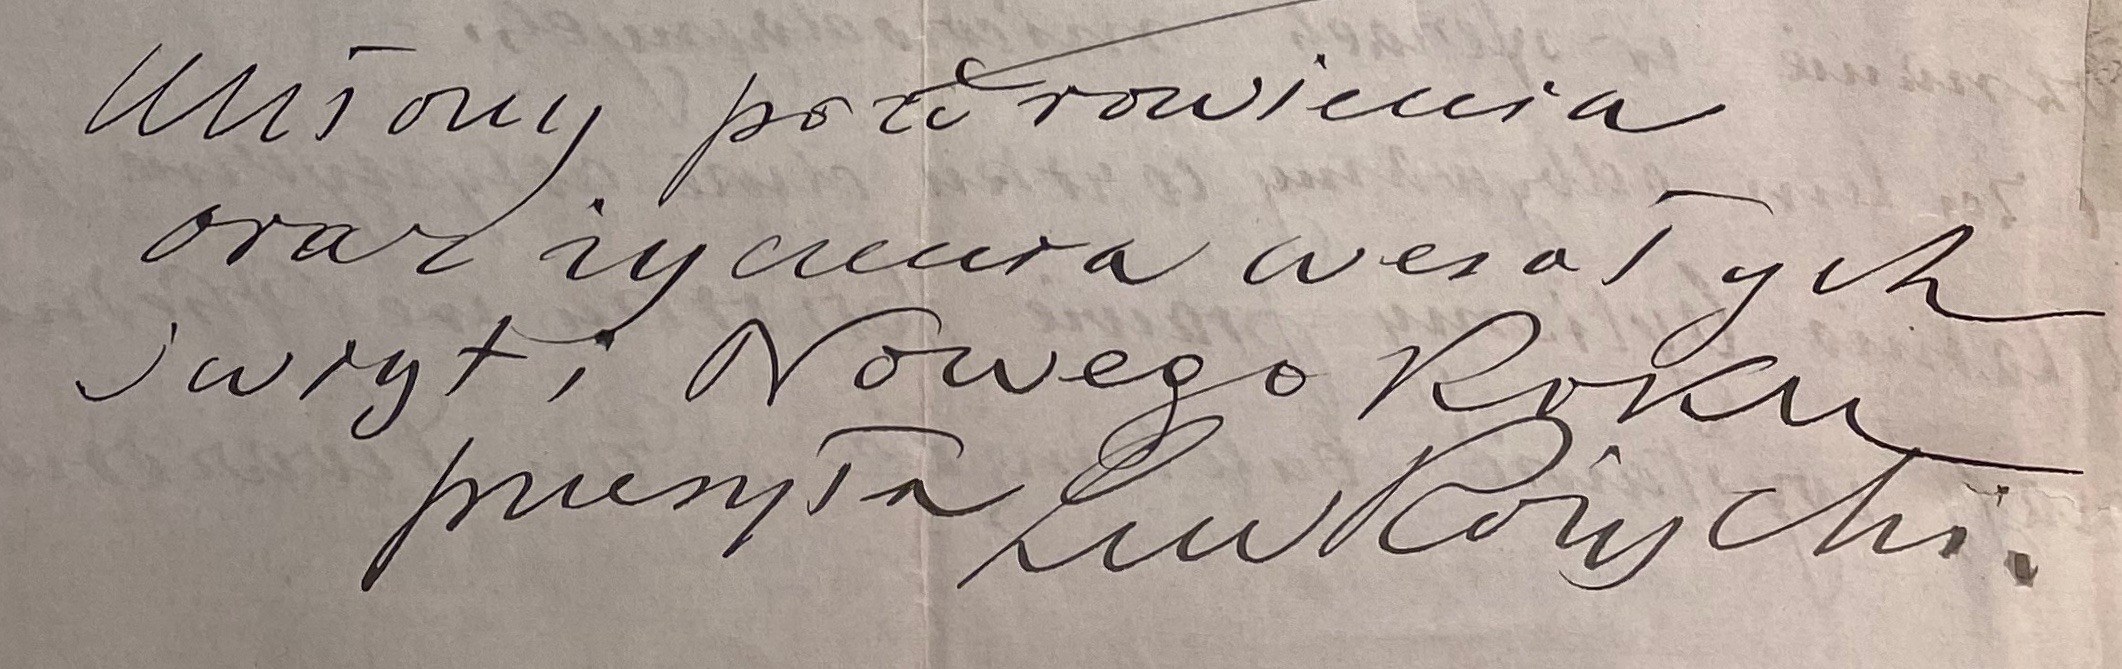 Ukłony pozdrowienia
oraz życzenia wesołych
świąt i Nowego Roku
przesyła